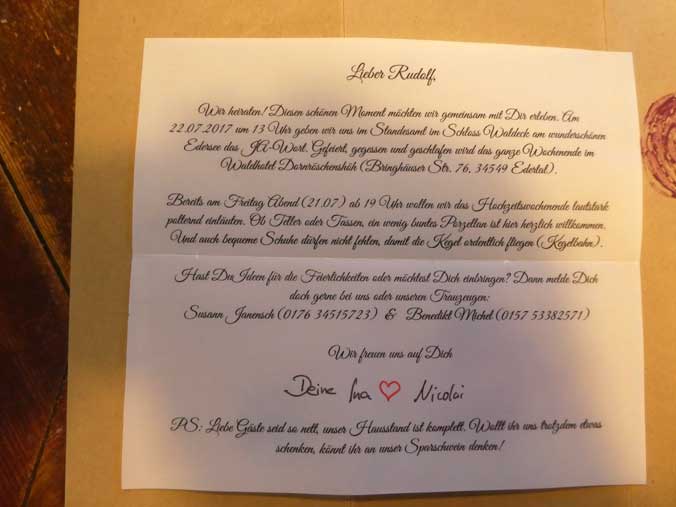 Lieber Rudolf,
Wir heiraten! Diesen schönen Moment möchten wir gemeinsam mit Dir erleben. Am
22.07.2017 um 13 Uhr geben wir uns im Standesamt im Schloss Waldeck am wunderschönen
Edersee das JA-Wort. Gefeiert, gegessen und geschlafen wird das ganze Wochenende im
Waldhotel Dornröschenshöh (Bringhäuser Str. 76, 34549 Edertal).
Bereits am Freitag Abend (21.07) ab 19 Uhr wollen wir das Hochzeitswochenende lautstark
polternd einläuten. Ob Teller oder Tassen, ein wenig buntes Porzellan ist hier herzlich willkommen.
Und auch bequeme Schuhe dürfen nicht fehlen, damit die Kegel ordentlich fliegen (Kegelbahn).
Hast Du Ideen für die Feierlichkeiten oder möchtest Dich einbringen? Dann melde Dich
doch gerne bei uns oder unseren Trauzeugen:
Susann Janensch (0176 34515723) & Benedikt Michel (0157 53382571)
Wir freuen uns auf Dich
Deine Ina ♡ Nicolai
PS: Liebe Gäste seid so nett, unser Hausstand ist komplett. Wollt ihr uns trotzdem etwas
schenken, könnt ihr an unser Sparschwein denken!